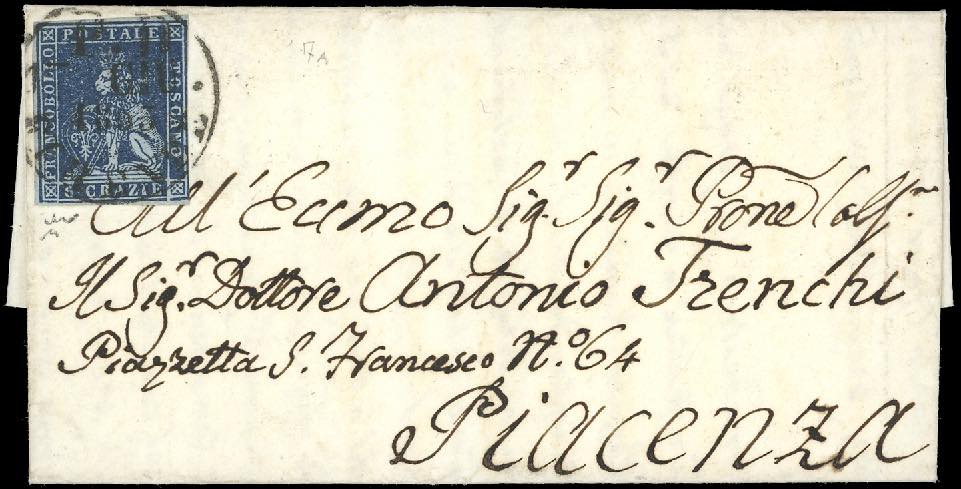 POSTALE
FRANCOBOLLO
TOSCANO
6 CRAZIE
GIU.
17A
All' Ecc̅mo Sig.r Sig.r Prone Col.mo
Il Sig.r Dottore Antonio Trenchi
Piazzetta S. Francesco N.o 64
Piacenza